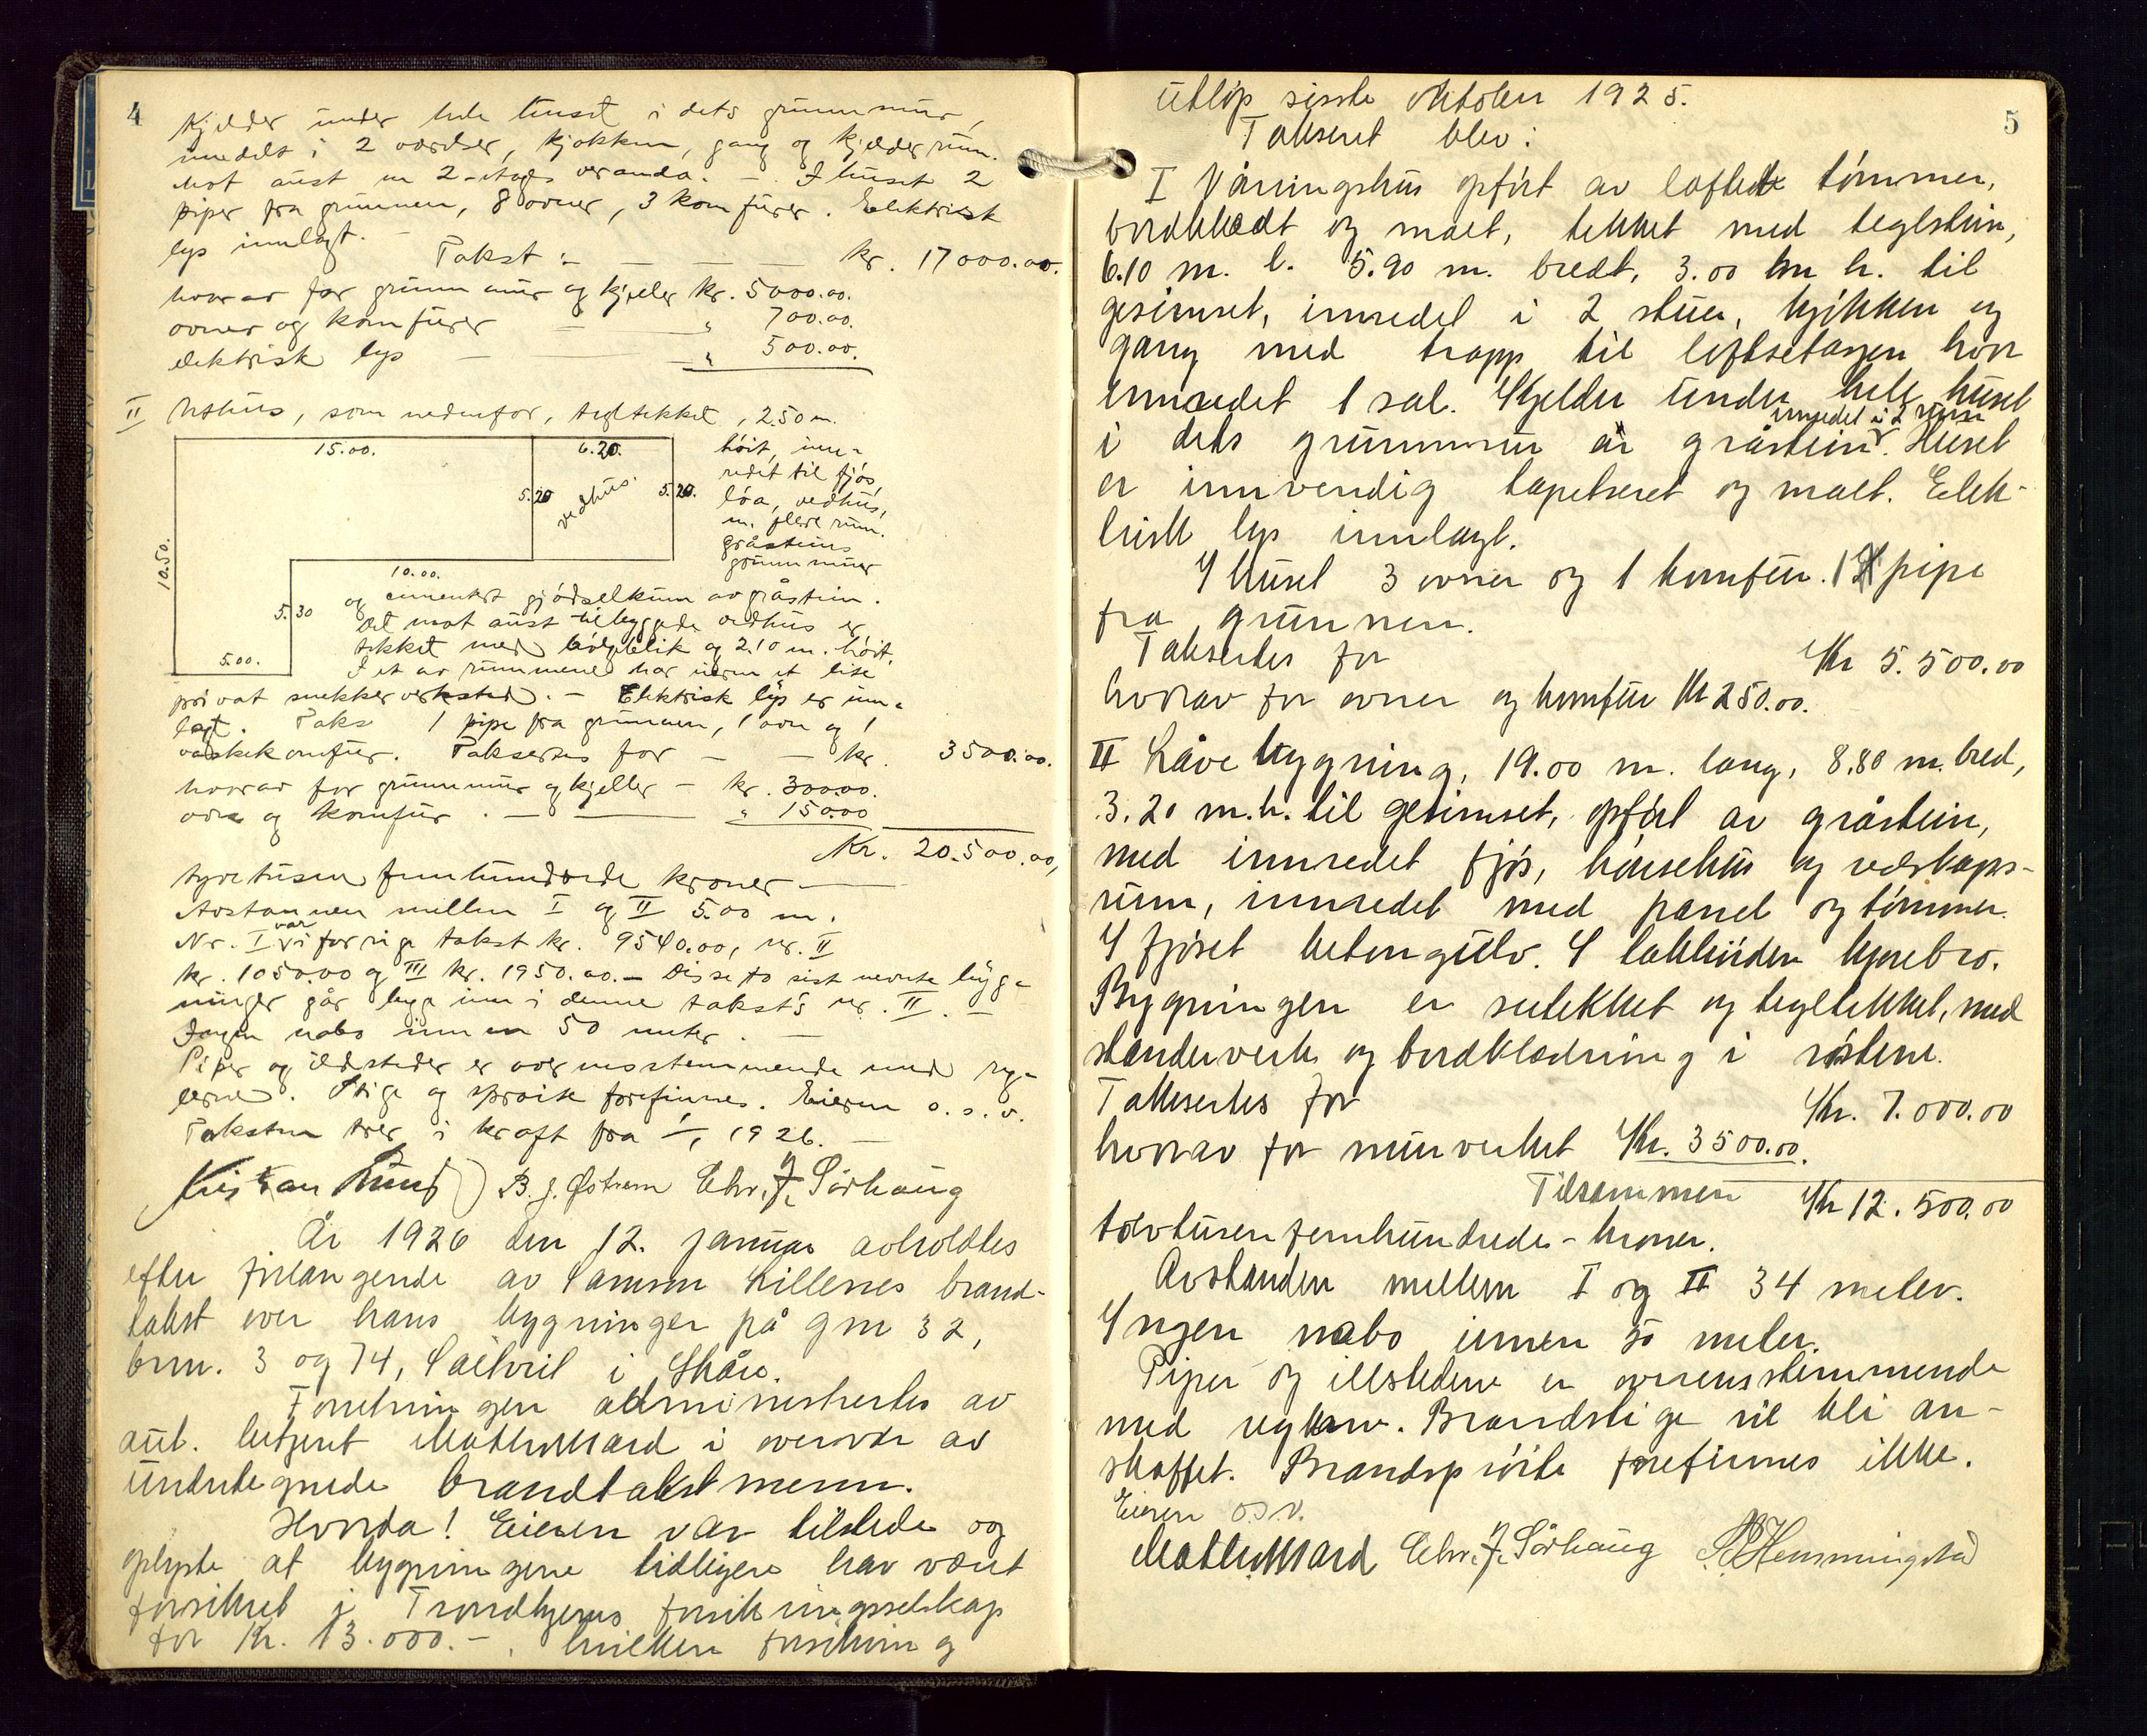 4
Kjelder under hele huset i dets grunnmur,
innredet i 2 værelser, kjøkken, gang og kjelderrum.
Mot aust en 2-etages veranda. - I huset 2
piper fra grunnen, 8 ovner, 3 komfurer. Elektrisk
lys innlagt. -
Takst: - — — — kr. 17000.00.
hvorav for grunnmur og kjeller kr. 5000.00.
ovner og komfurer — „ 700.00.
elektrisk lys — — „ 500.00.
II Uthus, som nedenfor, tegltekket, 2.50 m.
15.00.
6.20.
høit, inn-
redet til fjøs,
5.20
vedhus.
5.20.
løa, vedhus,
m. flere rum.
Gråsteins
grunnmur
10.50.
10.00.
og cementert gjødselkum av gråstein.
5.30
Det mot aust tilbyggede vedhus er
tekket med bølgeblik og 2.10 m. høit.
5.00.
I et av rummene har eieren et lite
privat snekkerverksted. - Elektrisk lys er inn-
lagt. Taks 1 pipe fra grunnen, 1 ovn og 1
vaskekomfur. Takseres for — — kr. 3500.00.
hvorav for grunnmur og kjeller - kr. 300.00.
ovn og komfur. — — „ 150.00
Kr. 20.500.00,
tyvetusen femhundrede kroner —
Avstannen mellem I og II 5.00 m.
Nr. I var i forrige takst kr. 9540.00, nr. II
kr. 1050.00 og III kr. 1950.00. - Disse to sist nevnte byg-
ninger går begge inn i denne takst's nr. II. -
Ingen nabo innen 50 meter. —
Piper og ildsteder er overensstemmende med reg-
lerne. Stige og sprøite forefinnes. Eieren o.s.v.
Taksten trer i kraft fra 1/1 1926. —
Kristian Lund B. J. Østrem Chr. J. Sørhaug
År 1926 den 12. januar avholdtes
efter forlangende av Lillenes brand-
takst over hans bygninger på gnr 32,
brnr. 3 og 74, i Skåre.
Forretningen administrertes av
aut. betjent i overvær av
undertegnede brandtakstmenn.
Hvorda! Eieren var tilstede og
oplyste at bygningene tidligere har været
forsikret i Trondhjems forsikringsselskap
for Kr. 13.000.-, hvilken forsikring
5
utløp sisste oktober 1925.
Takseret blev:
I Våningshus opført av loftede tømmer,
bordklædt og malt, tekket med teglstein,
6.10 m. l. 5.90 m. bredt, 3.00 m h. til
gesimset, innredet i 2 stuer, kjøkken og
gang med trapp til loftsetagen hvor
innredet 1 sal. Kjelder under hele huset
innredet i 2 rum
i dets grunnmur av gråstein. Huset
er innvendig tapetseret og malt. Elek-
trisk lys innlagt.
I huset 3 ovner og 1 komfur. 1 pipe
fra grunnen.
Taksertes for Kr 5.500.00
hvorav for ovner og komfur Kr 250.00.
II Låvebygning, 19.00 m. lang, 8.80 m. bred,
3.20 m.h. til gesimset, opført av gråstein,
med innredet fjøs, hønsehus og redskaps-
rum, innredet med panel og tømmer.
I fjøset betongulv. I kjørebro.
Bygningen er sutekket og tegltekket, med
standerverk og bordklædning i røstene.
Taksertes for Kr. 7.000.00
hvorav for murverket Kr. 3500.00.
Tilsammen Kr 12.500.00
tolvtusenfemhundrede - kroner.
Avstanden mellem I og II 34 meter.
Ingen nabo innen 50 meter.
Piper og illstedene er overensstemmende
med reglerne. Brandstige vil bli an-
skaffet. Brandsprøite forefinnes ikke.
Eieren o.s.v.
Chr. J. Sørhaug Hemmingstad